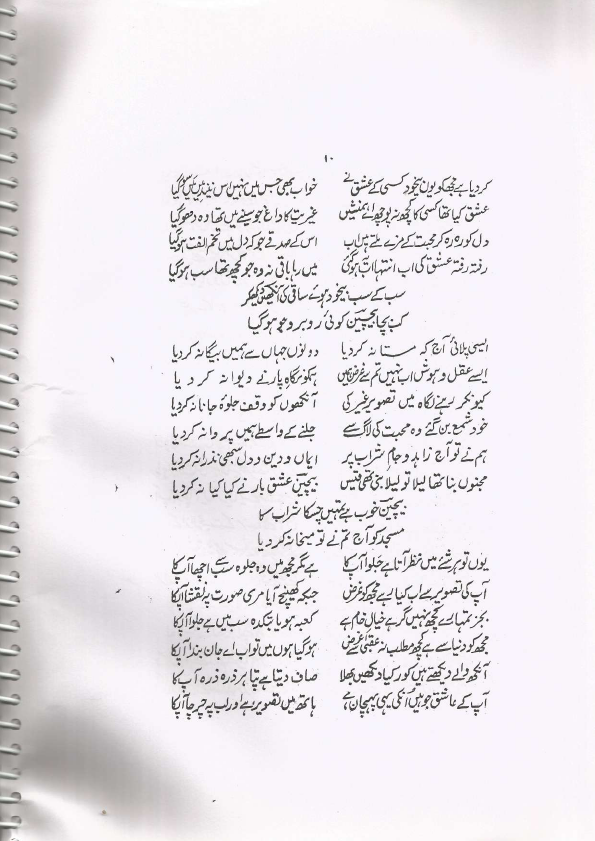 ۱۰
کردیا ہے مجھکو یوں بیخود کسی کے عشق نے خواب بھی جس میں نہیں اس نیند میں
عشق کیا تھا کسی کا کچھ نہ پوچھ اے ہمنشیں غیریت کا داغ جو سینے میں تھا وہ دھو گیا
دل کو رہ رہ کر محبت کے مزے ملتے ہیں اب اس کے صدقے جو کہ دل میں تخم الفت بو گیا
رفتہ رفتہ عشق کی اب انتہا آب ہو گئی میں رہا باقی نہ وہ جو کچھ تھا سب ہو گیا
سب کے سب بیخود ہوئے ساقی کی آنکھیں دیکھکر
کب بچا بیچین کوئی روبرو جو ہو گیا
ایسی پلائی آج کہ مستانہ کردیا دونوں جہاں سے ہمیں بیگانہ کردیا
ایسے عقل و ہوش اب نہیں تم سے غرض ہمیں ہمکو نگاہ یار نے دیوانہ کردیا
کیونکر رہے نگاہ میں تصویر غیر کی آنکھوں کو وقف جلوۂ جانانہ کردیا
خود شمع بن گئے وہ محبت کی لاگ سے جلنے کے واسطے ہمیں پروانہ کردیا
ہم نے تو آج زاہد و جام شراب پر ایماں و دین و دل سبھی نذرانہ کردیا
مجنوں بنا تھا لیلا تو لیلا بنی تھی قیس بیچین عشق یار نے کیا کیا نہ کردیا
بیچین خوب ہے تمہیں چسکا شراب کا
مسجد کو آج تم نے تو میخانہ کردیا
یوں تو ہر شئے میں نظر آتا ہے جلوا آپ کا ہے مگر مجھ میں وہ جلوہ سب سے اچھا آپ کا
آپ کی تصویر سے اب کیا رہے مجھ کو غرض جبکہ کھینچ آیا مری صورت پہ نقشا آپ کا
بجز تمہارے کچھ نہیں گر ہے خیال خام ہے کعبہ ہو یا بتکدہ سب میں ہے جلوا آپ کا
مجھ کو دنیا سے ہے کچھ مطلب نہ عقبیٰ سے غرض ہو گیا ہوں میں تو اب اے جان بندا آپ کا
آنکھ والے دیکھتے ہیں کور کیا دیکھیں بھلا صاف دیتا ہے پتا ہر ذرہ ذرہ آپ کا
آپ کے عاشق جو ہیں انکی یہی پہچان ہے ہاتھ میں تصویر ہے اور لب پہ چرچا آپ کا